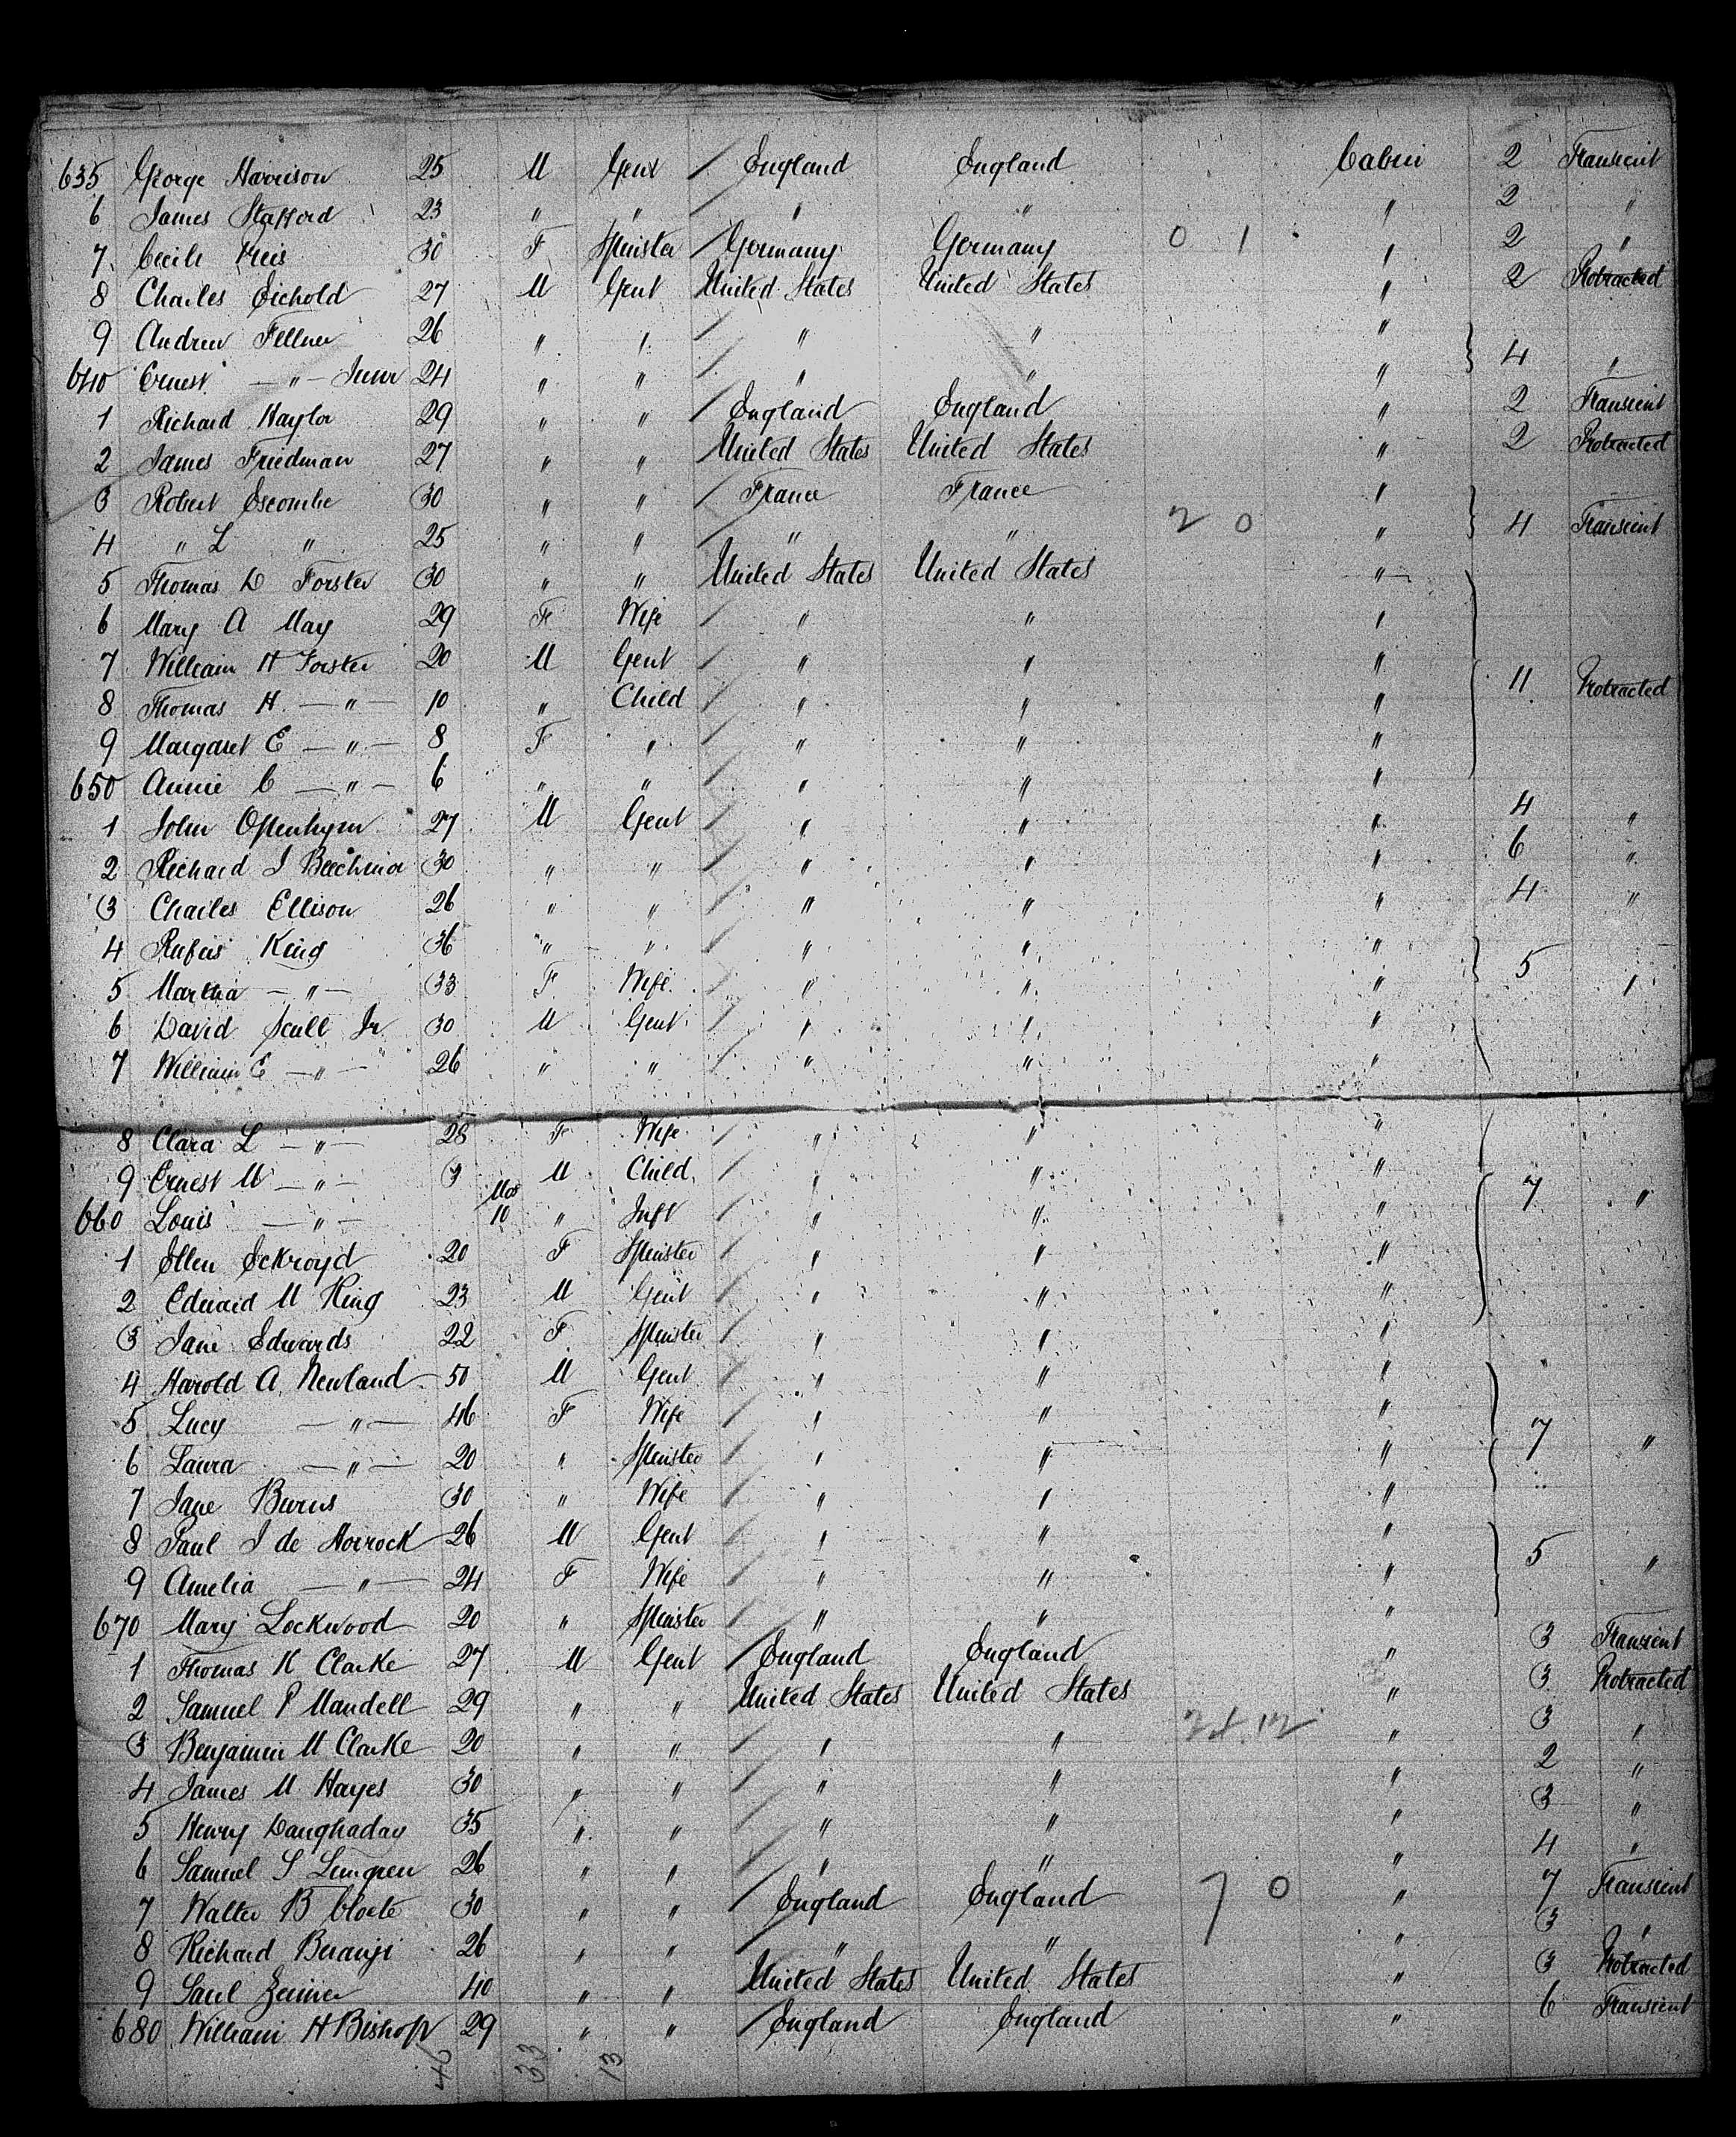 635 George Harrison 25 M Gent / England England Cabin 2 Transient
6 James Stafford 23 " " / " " " 2 "
7 Cecile 30 F Spinster / Germany Germany 0 1 " 2 "
8 Charles Eichold 27 M Gent United States United States " 2 Protracted
9 Andrew Fellner 26 " " / " " "
640 Ernest — " — Junr 24 " " / " " " 4 "
1 Richard Naylor 29 " " / England England " 2 Transient
2 James Friedman 27 " " United States United States " 2 Protracted
3 Robert Escombe 30 " " / France France "
4 " L " 25 " " / " " 2 0 " 4 Transient
5 Thomas D Forster 30 " " United States United States "
6 Mary A May 29 F Wife / " " "
7 William H Forster 20 M Gent / " " "
8 Thomas H. — " — 10 " Child / " " " 11 Protracted
9 Margaret E — " — 8 F " / " " "
650 Annie C — " — 6 " " / " " "
1 John 27 M Gent / " " " 4 "
2 Richard J 30 " " / " " " 6 "
3 Charles Ellison 26 " " / " " " 4 "
4 Rufus King 36 " " / " " "
5 Martha — " — 33 F Wife / " " " 5 "
6 David Scull Jr 30 M Gent / " " "
7 William E — " — 26 " " / " " "
8 Clara L — " — 28 F Wife / " " "
9 Ernest M — " — 3 M Child / " " " 7 "
660 Louis — " — Mos 10 " Inft / " " "
1 Ellen Eckroyd 20 F Spinster / " " "
2 Edward M King 23 M Gent / " " "
3 Jane Edwards 22 F Spinster / " " "
4 Harold A Newland 50 M Gent / " " "
5 Lucy — " — 46 F Wife / " " "
6 Laura — " — 20 " Spinster / " " " 7 "
7 Jane Burns 30 " Wife / " " "
8 Paul J de Horrock 26 M Gent / " " " 5 "
9 Amelia — " — 24 F Wife / " " "
670 Mary Lockwood 20 " Spinster / " " "
1 Thomas K Clarke 27 M Gent / England England " 3 Transient
2 Samuel P Mandell 29 " " United States United States " 3 Protracted
3 Benjamin M Clarke 20 " " / " " " 3 "
4 James M Hayes 30 " " / " " " 2 "
5 Henry Daughaday 35 " " / " " " 3 "
6 Samuel S 26 " " / " " " 4 "
7 Walter B Cloete 30 " " / England England 7 0 " 7 Transient
8 Richard 26 " " / " " " 3 "
9 Saul 40 " " United States United States " 3 Protracted
680 William H Bishop 29 " " / England England " 6 Transient
46 33 13